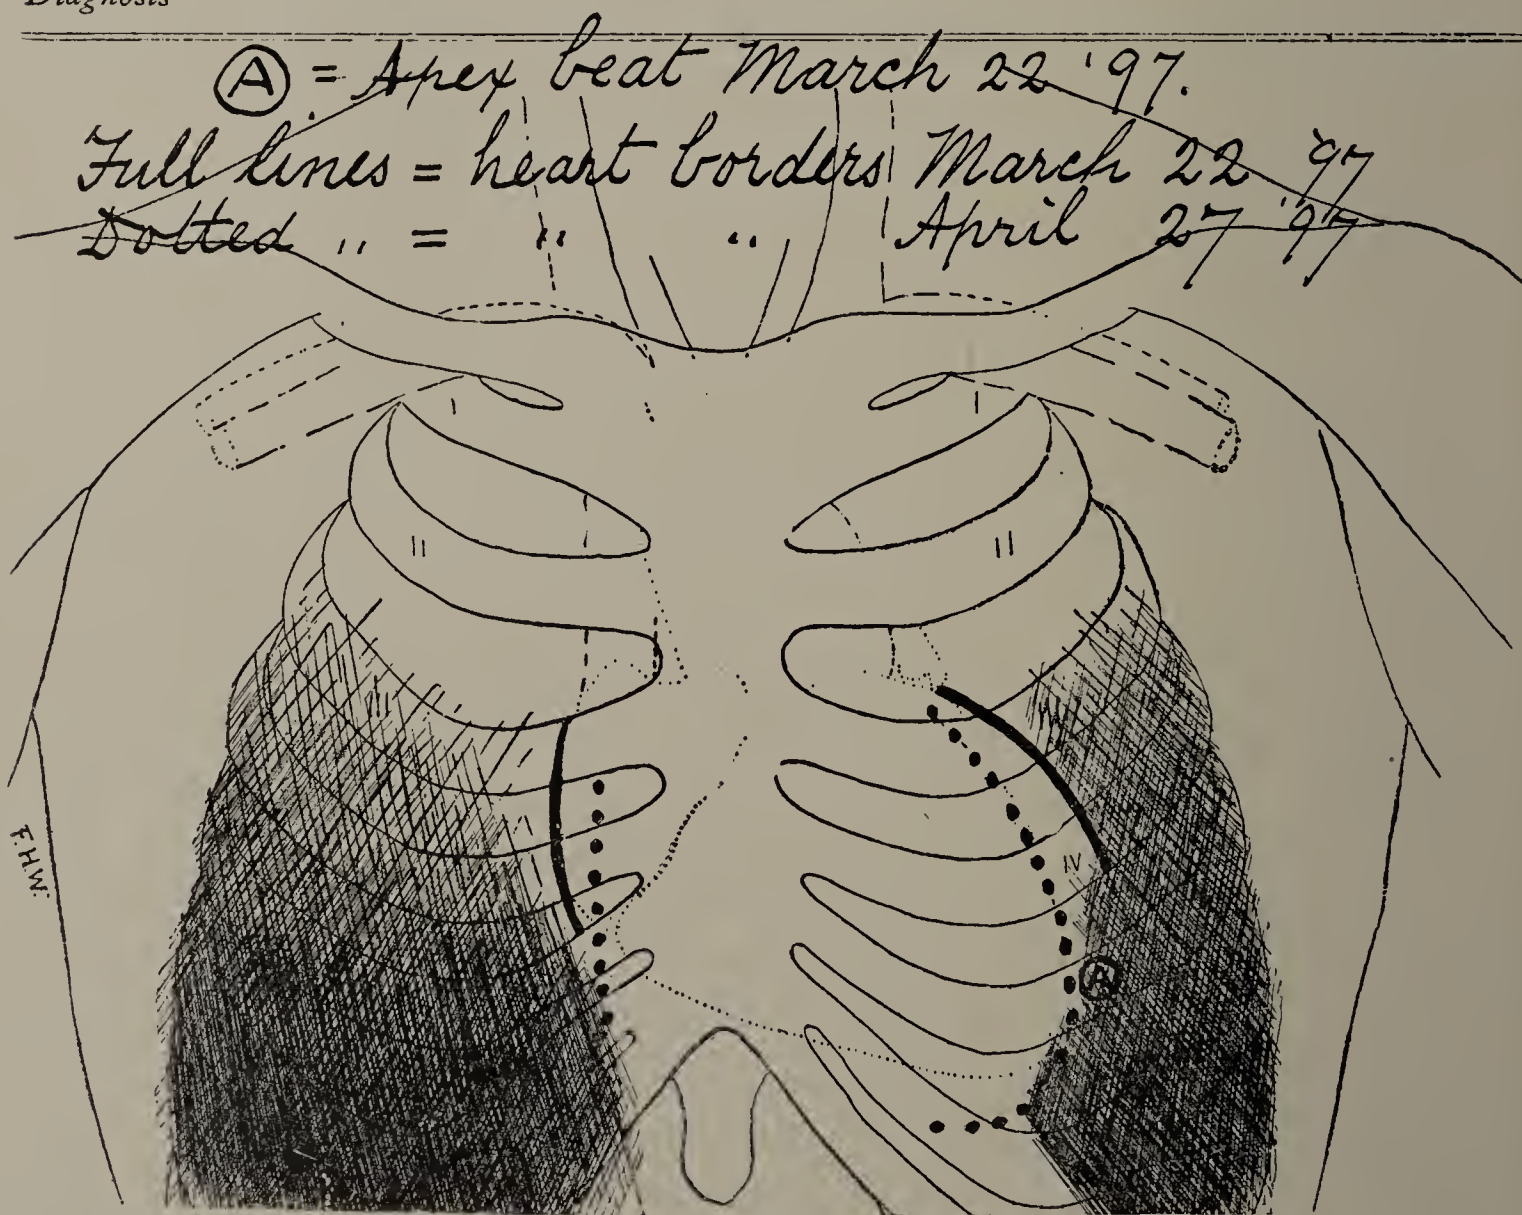 Diagnosis
Ⓐ = Apex beat March 22 '97.
Full lines = heart borders March 22 '97
Dotted " = " " April 27 '97
I
I
II
II
III
IV
F.H.W.
A